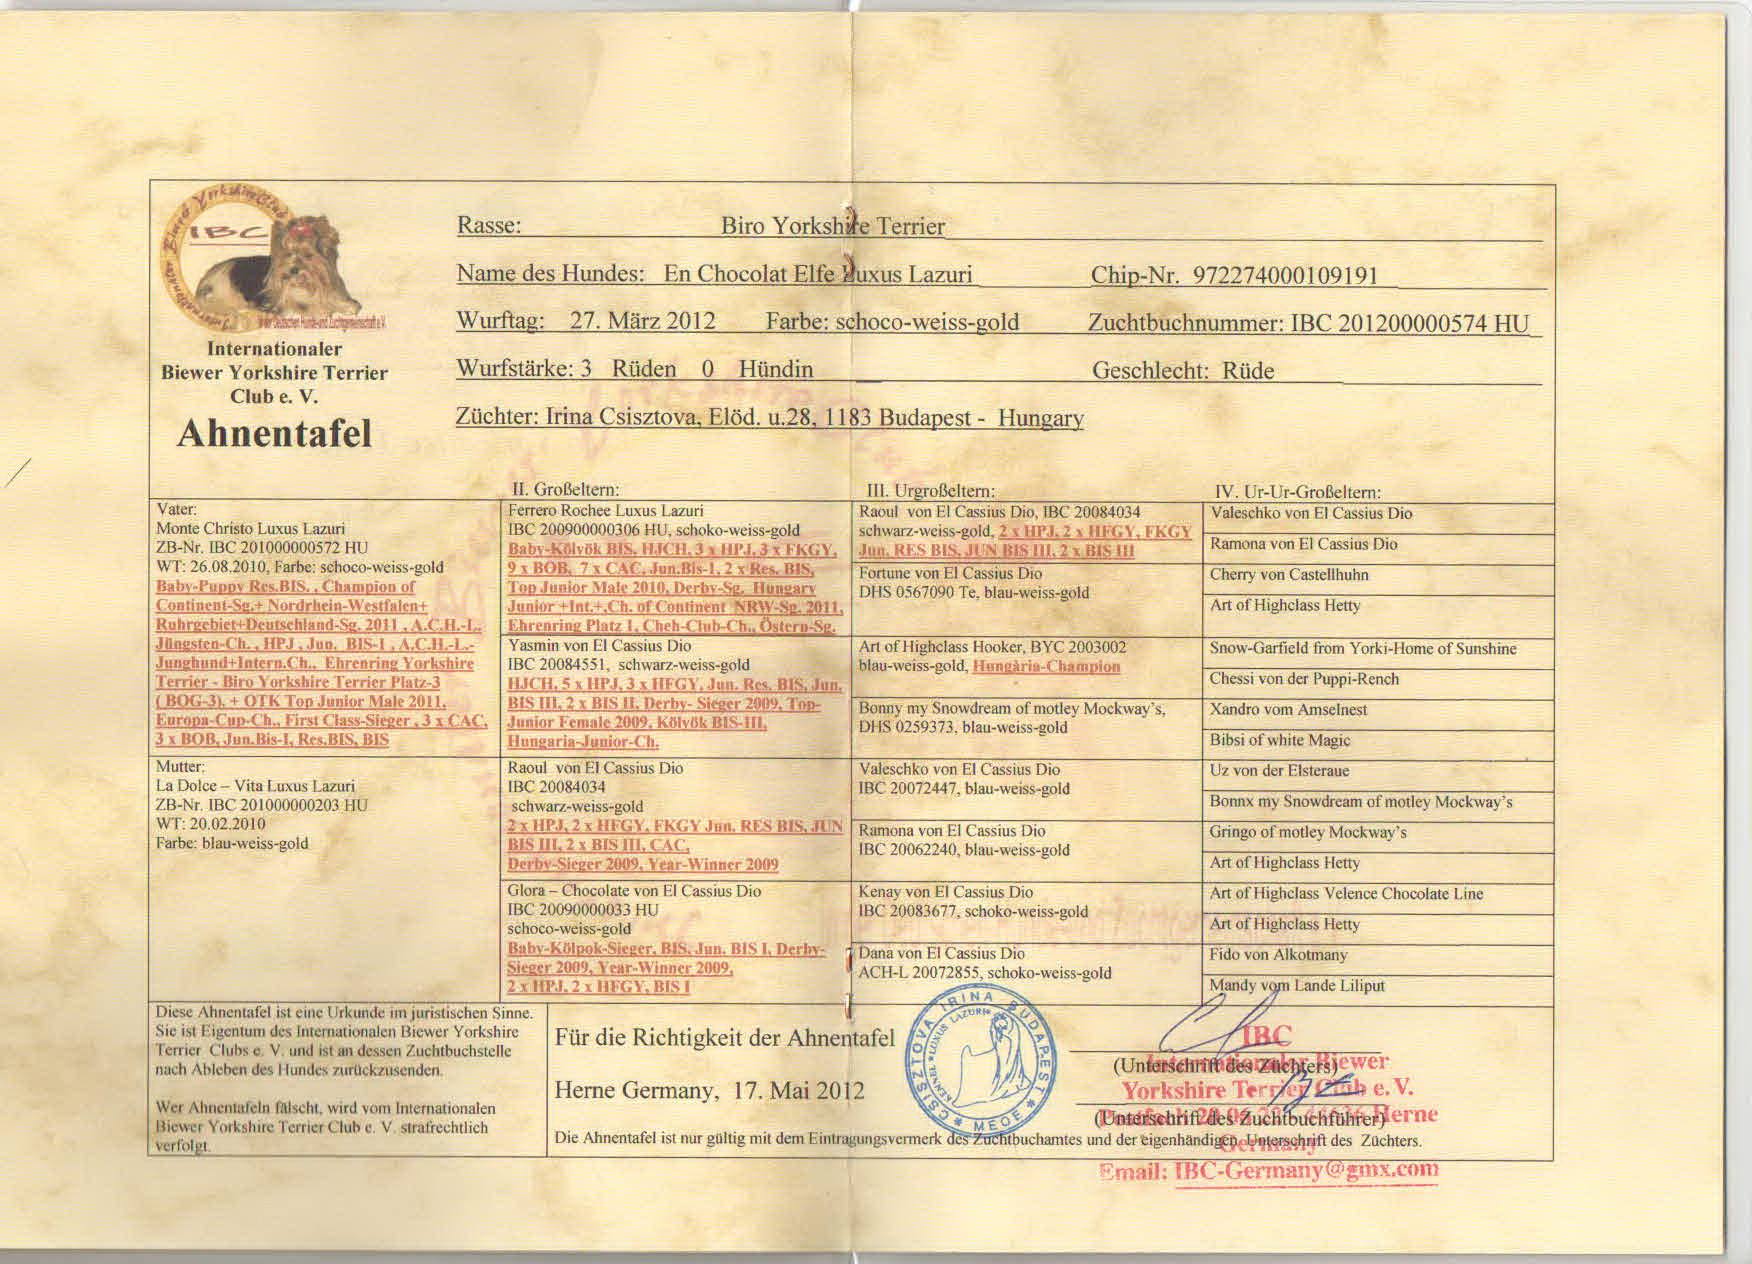 Internationaler Biewer Yorkshire Club
IBC
in der Deutschen Hunde-und Zuchtgemeinschaft e.V.
Internationaler
Biewer Yorkshire Terrier
Club e. V.
Ahnentafel
Rasse: Biro Yorkshire Terrier
Name des Hundes: En Chocolat Elfe Luxus Lazuri Chip-Nr. 972274000109191
Wurftag: 27. März 2012 Farbe: schoco-weiss-gold Zuchtbuchnummer: IBC 201200000574 HU
Wurfstärke: 3 Rüden 0 Hündin Geschlecht: Rüde
Züchter: Irina Csisztova, Elöd. u.28, 1183 Budapest - Hungary
Vater:
Monte Christo Luxus Lazuri
ZB-Nr. IBC 201000000572 HU
WT: 26.08.2010, Farbe: schoco-weiss-gold
Baby-Puppy Res.BIS. , Champion of
Continent-Sg.+ Nordrhein-Westfalen+
Ruhrgebiet+Deutschland-Sg. 2011 , A.C.H.-L.
Jüngsten-Ch. , HPJ , Jun. BIS-1 , A.C.H.-L.-
Junghund+Intern.Ch., Ehrenring Yorkshire
Terrier - Biro Yorkshire Terrier Platz-3
( BOG-3), + OTK Top Junior Male 2011,
Europa-Cup-Ch., First Class-Sieger , 3 x CAC,
3 x BOB, Jun.Bis-I, Res.BIS, BIS
Mutter:
La Dolce – Vita Luxus Lazuri
ZB-Nr. IBC 201000000203 HU
WT: 20.02.2010
Farbe: blau-weiss-gold
II. Großeltern:
Ferrero Rochee Luxus Lazuri
IBC 200900000306 HU, schoko-weiss-gold
Baby-Kölyök BIS, HJCH, 3 x HPJ, 3 x FKGY,
9 x BOB, 7 x CAC, Jun.Bis-1, 2 x Res. BIS,
Top Junior Male 2010, Derby-Sg. Hungary
Junior +Int.+.Ch. of Continent NRW-Sg. 2011,
Ehrenring Platz 1, Cheh-Club-Ch., Östern-Sg.
Yasmin von El Cassius Dio
IBC 20084551, schwarz-weiss-gold
HJCH, 5 x HPJ, 3 x HFGY, Jun. Res. BIS, Jun.
BIS III, 2 x BIS II, Derby- Sieger 2009, Top-
Junior Female 2009, Kölyök BIS-III,
Hungaria-Junior-Ch.
Raoul von El Cassius Dio
IBC 20084034
schwarz-weiss-gold
2 x HPJ, 2 x HFGY, FKGY Jun. RES BIS, JUN
BIS III, 2 x BIS III, CAC,
Derby-Sieger 2009, Year-Winner 2009
Glora – Chocolate von El Cassius Dio
IBC 20090000033 HU
schoco-weiss-gold
Baby-Kölpok-Sieger, BIS, Jun. BIS I, Derby-
Sieger 2009, Year-Winner 2009,
2 x HPJ, 2 x HFGY, BIS I
III. Urgroßeltern:
Raoul von El Cassius Dio, IBC 20084034
schwarz-weiss-gold, 2 x HPJ, 2 x HFGY, FKGY
Jun. RES BIS, JUN BIS III, 2 x BIS III
Fortune von El Cassius Dio
DHS 0567090 Te, blau-weiss-gold
Art of Highclass Hooker, BYC 2003002
blau-weiss-gold, Hungària-Champion
Bonny my Snowdream of motley Mockway's,
DHS 0259373, blau-weiss-gold
Valeschko von El Cassius Dio
IBC 20072447, blau-weiss-gold
Ramona von El Cassius Dio
IBC 20062240, blau-weiss-gold
Kenay von El Cassius Dio
IBC 20083677, schoko-weiss-gold
Dana von El Cassius Dio
ACH-L 20072855, schoko-weiss-gold
IV. Ur-Ur-Großeltern:
Valeschko von El Cassius Dio
Ramona von El Cassius Dio
Cherry von Castellhuhn
Art of Highclass Hetty
Snow-Garfield from Yorki-Home of Sunshine
Chessi von der Puppi-Rench
Xandro vom Amselnest
Bibsi of white Magic
Uz von der Elsteraue
Bonnx my Snowdream of motley Mockway's
Gringo of motley Mockway's
Art of Highclass Hetty
Art of Highclass Velence Chocolate Line
Art of Highclass Hetty
Fido von Alkotmany
Mandy vom Lande Liliput
Diese Ahnentafel ist eine Urkunde im juristischen Sinne.
Sie ist Eigentum des Internationalen Biewer Yorkshire
Terrier Clubs e. V. und ist an dessen Zuchtbuchstelle
nach Ableben des Hundes zurückzusenden.
Wer Ahnentafeln fälscht, wird vom Internationalen
Biewer Yorkshire Terrier Club e. V. strafrechtlich
verfolgt.
Für die Richtigkeit der Ahnentafel
Herne Germany, 17. Mai 2012
CSISZTOVA IRINA BUDAPEST * MEOE *
KENNEL * LUXUS LAZURI *
(Unterschrift des Züchters)
(Unterschrift des Zuchtbuchführer)
Die Ahnentafel ist nur gültig mit dem Eintragungsvermerk des Zuchtbuchamtes und der eigenhändigen Unterschrift des Züchters.
IBC
Internationaler Biewer
Yorkshire Terrier Club e. V.
Herne
Germany
Email: IBC-Germany@gmx.com